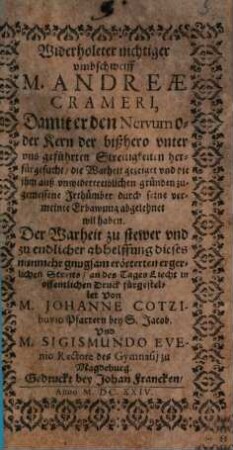 Widerholeter nichtiger
vmbschweiff
M. ANDREÆ
CRAMERI,
Damit er den Nervum o-
der Kern der bißhero vnter
vns geführten Streitigkeiten her-
für gesucht / die Warheit gezeiget vnd die
ihm auß vnwidertreiblichen gründen zu-
gemessene Irthümber durch seine ver-
meinte Erbawung abgelehnet
wil haben.
Der Warheit zu stewer vnd
zu endlicher abhelffung dieses
nunmehr gnugsam erörterten erger-
lichen Streits / an des Tages Liecht in
öffentlichen Druck fürgestel-
let von
M. JOHANNE COTZI-
buvio Pfarrern bey S. Jacob.
Vnd
M. SIGISMUNDO EVE-
nio Rectore des Gymnasij zu
Magdeburg.
Gedruckt bey Johan Francken /
Anno M. DC. XXIV.